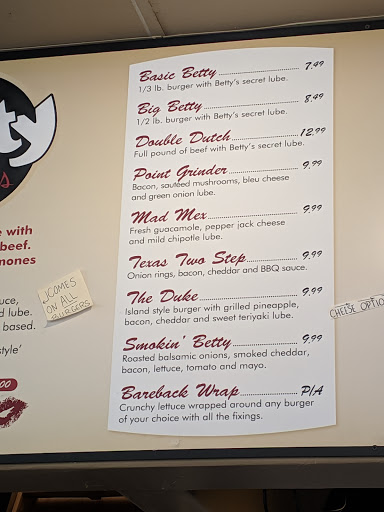 ty
s
e with
beef.
mones
uce,
d lube.
based.
style'
00
COMES
ON ALL
BURGERS
Basic Betty 7.49
1/3 lb. burger with Betty's secret lube.
Big Betty 8.49
1/2 lb. burger with Betty's secret lube.
Double Dutch 12.99
Full pound of beef with Betty's secret lube.
Point Grinder 9.99
Bacon, sautéed mushrooms, bleu cheese
and green onion lube.
Mad Mex 9.99
Fresh guacamole, pepper jack cheese
and mild chipotle lube.
Texas Two Step 9.99
Onion rings, bacon, cheddar and BBQ sauce.
The Duke 9.99
Island style burger with grilled pineapple,
bacon, cheddar and sweet teriyaki lube.
Smokin' Betty 9.99
Roasted balsamic onions, smoked cheddar,
bacon, lettuce, tomato and mayo.
Bareback Wrap P/A
Crunchy lettuce wrapped around any burger
of your choice with all the fixings.
CHEESE OPTIO